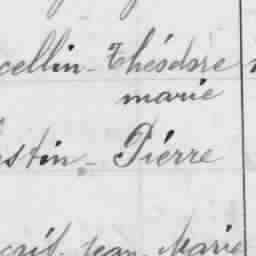 cellin - Théodore
marie
stin - Pierre
Jean Marie